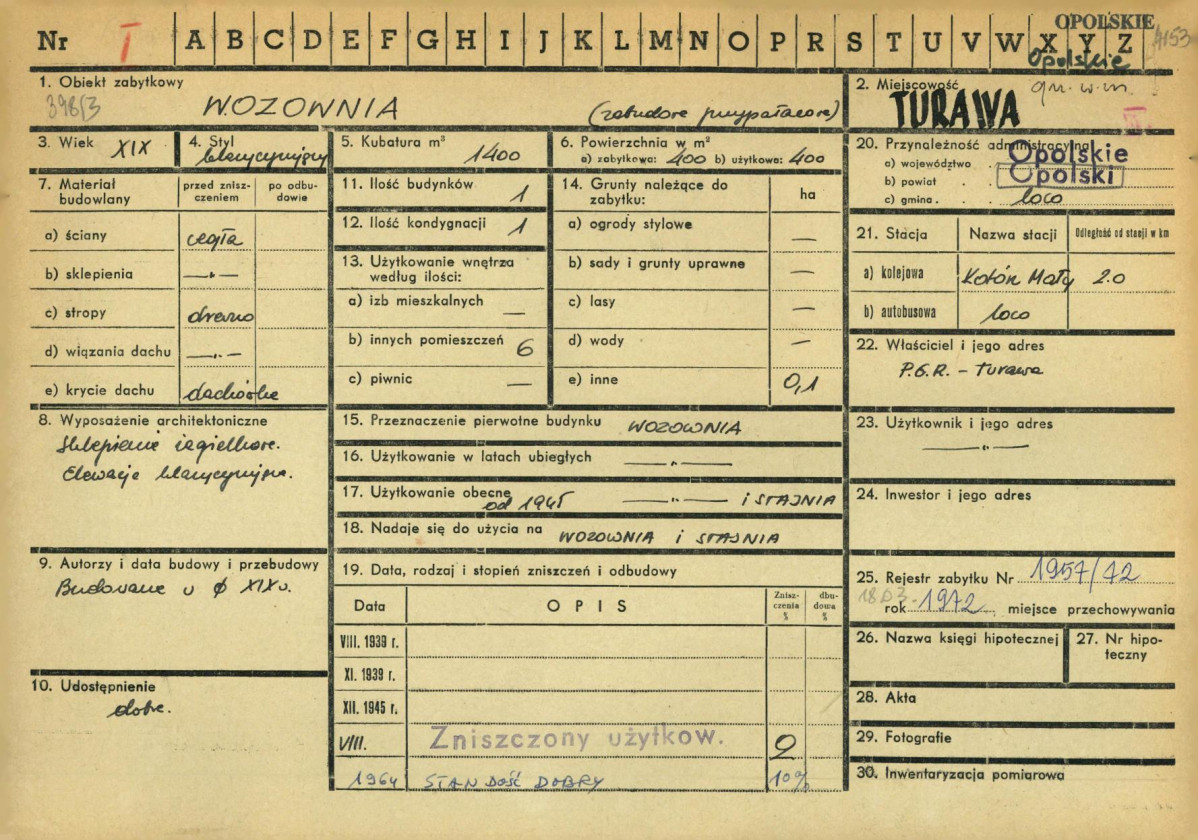 OPOLSKIE
Nr I A B C D E F G H I J K L M N O P R S T U V W X Y Z 4153
Opolskie
1. Obiekt zabytkowy
398/3
WOZOWNIA
2. Miejscowość
TURAWA
3. Wiek XIX
4. Styl klasycyzujący
5. Kubatura m³ 1400
6. Powierzchnia w m²
a) zabytkowa: 400 b) użytkowa: 400
20. Przynależność administracyjna
a) województwo . Opolskie
b) powiat . . Opolski
c) gmina . . loco
7. Materiał budowlany
przed znisz-
czeniem
po odbu-
dowie
a) ściany cegła
b) sklepienia —„—
c) stropy drewno
d) wiązania dachu —„—
e) krycie dachu dachówka
11. Ilość budynków 1
12. Ilość kondygnacji 1
13. Użytkowanie wnętrza
według ilości:
a) izb mieszkalnych —
b) innych pomieszczeń 6
c) piwnic —
14. Grunty należące do
zabytku:
ha
a) ogrody stylowe —
b) sady i grunty uprawne —
c) lasy —
d) wody —
e) inne 0,1
21. Stacja Nazwa stacji Odległość od stacji w km
a) kolejowa Kotórz Mały 2.0
b) autobusowa loco
22. Właściciel i jego adres
P.G.R. – Turawa
8. Wyposażenie architektoniczne
Sklepienie żagielkowe.
Elewacje klasycyzujące.
15. Przeznaczenie pierwotne budynku WOZOWNIA
16. Użytkowanie w latach ubiegłych —„—
17. Użytkowanie obecne
od 1945 —„— i STAJNIA
18. Nadaje się do użycia na WOZOWNIA i STAJNIA
23. Użytkownik i jego adres
—„—
24. Inwestor i jego adres
9. Autorzy i data budowy i przebudowy
Budowane w XIX w.
10. Udostępnienie
dobre.
19. Data, rodzaj i stopień zniszczeń i odbudowy
Data OPIS
Znisz-
czenia
%
dbu-
dowa
%
VIII. 1939 r.
XI. 1939 r.
XII. 1945 r.
VIII. Zniszczony użytkow. 2
1964 STAN DOŚĆ DOBRY 10%
25. Rejestr zabytku Nr 1957/72
rok 1972 miejsce przechowywania
26. Nazwa księgi hipotecznej
27. Nr hipo-
teczny
28. Akta
29. Fotografie
30. Inwentaryzacja pomiarowa